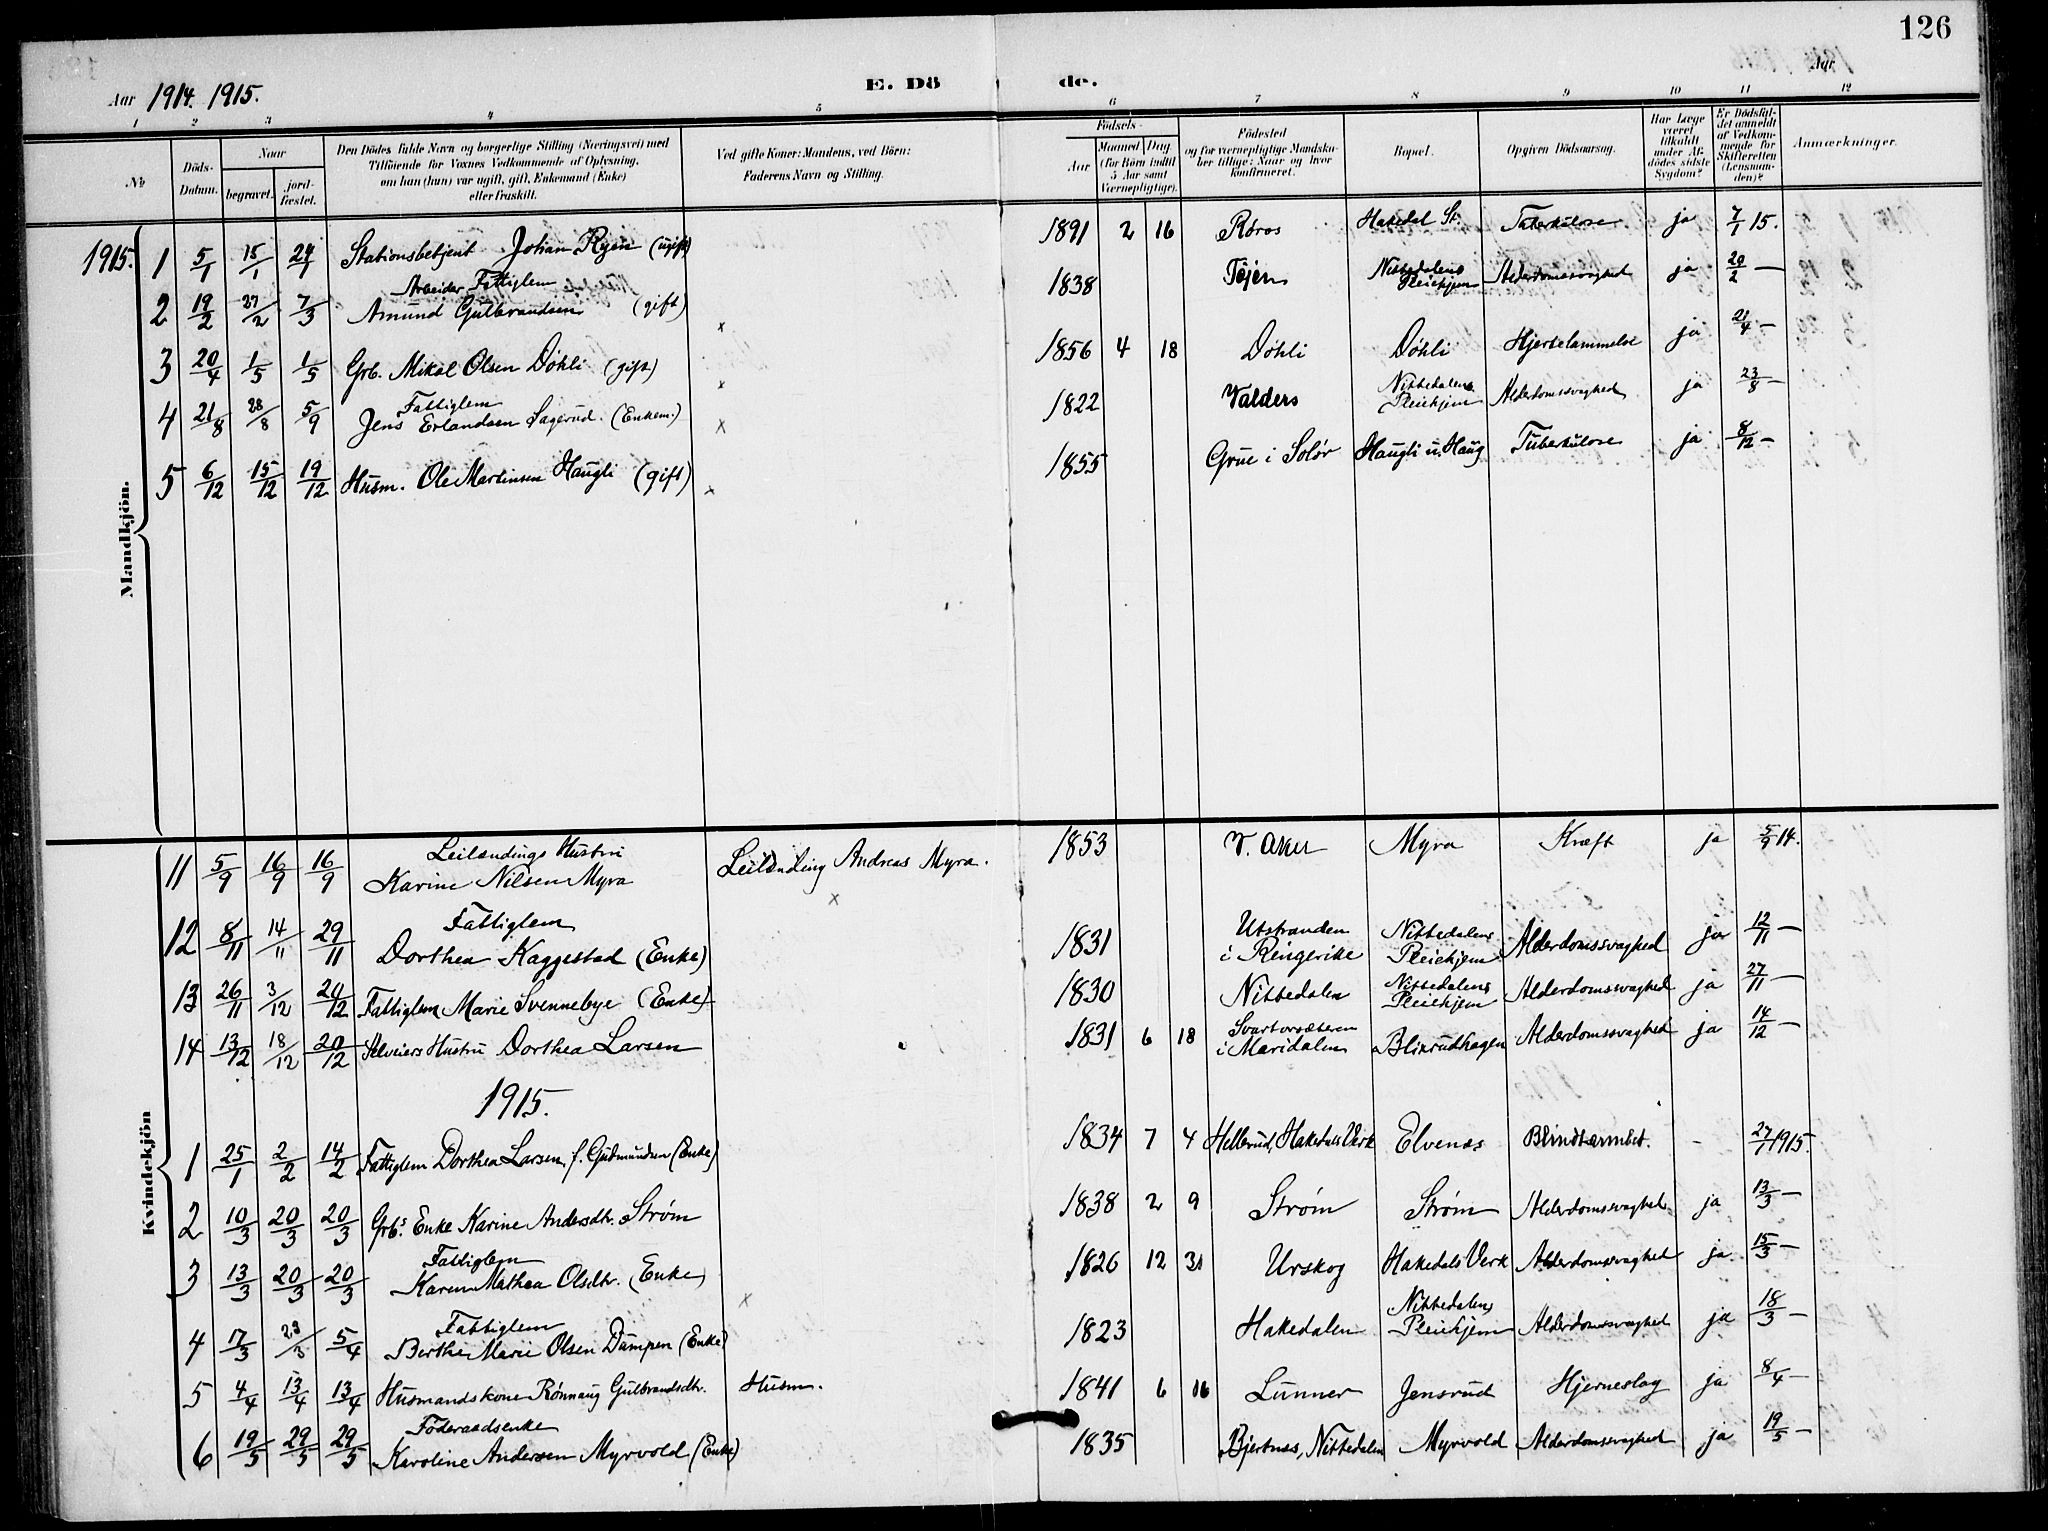 126
Aar 1914. 1915.
E. Dö de.
Aar
1 2 3 4 5 6 7 8 9 10 11 12
No
Döds-Datum.
Naar
begravet.
jord-fæstet.
Den Dödes fulde Navn og borgerlige Stilling (Næringsvei) med
Tilföiende for Voxnes Vedkommende af Oplysning,
om han (hun) var ugift, gift, Enkemand (Enke)
eller fraskilt.
Ved gifte Koner: Mandens, ved Börn:
Faderens Navn og Stilling.
Födsels-
Aar
Maaned Dag
(for Börn indtil
5 Aar samt
Værnepligtige).
Födested
og for værnepligtige Mandska-
ber tillige: Naar og hvor
konfirmeret.
Bopæl.
Opgiven Dödsaarsag.
Har Læge
været
tilkaldt
under Af-
dödes sidste
Sygdom?
Er Dödsfal-
det anmeldt
af Vedkom-
mende for
Skifteretten
(Lensman-
den)?
Anmærkninger.
Mandkjön.
1915. 1 5/1 15/1 24/1 Stationsbetjent Johan Ryen (ugift) 1891 2 16 Røros Hakedal St. Tuberkulose ja 7/1 15.
Arbeider Fattiglem
2 19/2 27/2 7/3 Amund Gulbrandsen (gift) x 1838 Tøien Nittedalens Pleiehjem Alderdomssvaghed ja 20/2 —
3 20/4 1/5 1/5 Grb. Mikal Olsen Döhli (gift) x 1856 4 18 Döhli Döhli Hjertelammelse ja 21/4 —
Fattiglem
4 21/8 28/8 5/9 Jens Erlandsen Sagerud. (Enkem.) x 1822 Valders Nittedalens Pleiehjem Alderdomssvaghed ja 23/8 —
5 6/12 15/12 19/12 Husm. Ole Martinsen Haugli (gift) x 1855 Grue i Solør Haugli u. Haug Tuberkulose ja 8/12 —
Kvindekjön
Leilændings Hustru
11 5/9 16/9 16/9 Karine Nilsen Myra Leilænding Andreas Myra. x 1853 V. Aker Myra Kræft ja 5/9 14.
Fattiglem
12 8/11 14/11 29/11 Dorthea Kaggestad (Enke) 1831 Utstranden i Ringerike Nittedalens Pleiehjem Alderdomssvaghed ja 12/11 —
13 26/11 3/12 20/12 Fattiglem Marie Svennebye (Enke) 1830 Nittedalen Nittedalens Pleiehjem Alderdomssvaghed ja 27/11 —
14 13/12 18/12 20/12 Selveiers Hustru Dorthea Larsen 1831 6 18 Svartorsæteren i Maridalen Blikrudhagen Alderdomssvaghed ja 14/12 —
1915.
1 25/1 2/2 14/2 Fattiglem Dorthea Larsen, f. Gudmundsen (Enke) 1834 7 4 Hellerud, Hakedals Verk Elvenæs Blindtarmbet. - 27/1 1915.
2 10/3 20/3 20/3 Grbs Enke Karine Andersdtr. Strøm 1838 2 9 Strøm Strøm Alderdomssvaghed ja 13/3 —
Fattiglem
3 13/3 20/3 20/3 Karen Mathea Olsdtr. (Enke) x 1826 12 31 Urskog Hakedals Verk Alderdomssvaghed ja 15/3 —
Fattiglem
4 17/3 23/3 5/4 Berthe Marie Olsen Dampen (Enke) 1823 Hakedalen Nittedalens Pleiehjem Alderdomssvaghed ja 18/3 —
5 4/4 13/4 13/4 Husmandskone Rönnaug Gulbrandsdtr. Husm. 1841 6 16 Lunner Jensrud Hjerneslag ja 8/4 —
Föderaadsenke
6 19/5 29/5 29/5 Karoline Andersen Myrvold (Enke) 1835 Bjertnæs, Nittedalen Myrvold Alderdomssvaghed ja 19/5 —